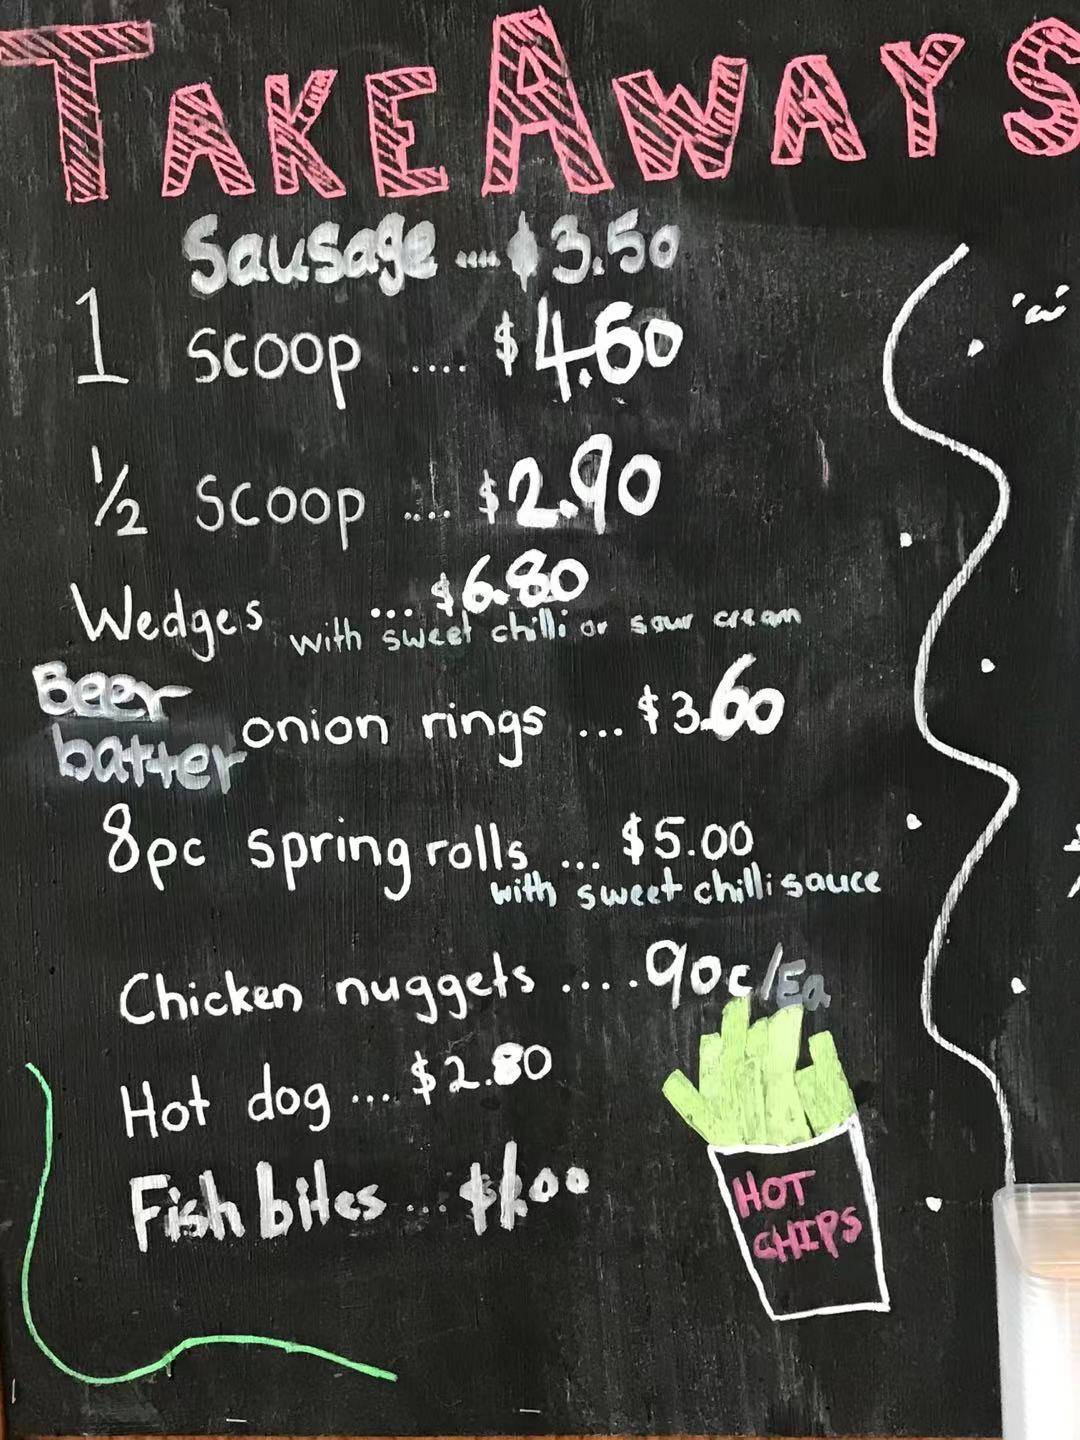 TAKEAWAYS
Sausage .... $3.50
1 scoop .... $4.60
1/2 scoop .... $2.90
Wedges ... $6.80
with sweet chilli or sour cream
Beer
batter onion rings ... $3.60
8pc spring rolls ... $5.00
with sweet chilli sauce
Chicken nuggets .... 90c/Ea
Hot dog .... $2.80
Fish bites ... $1.00
HOT
CHIPS